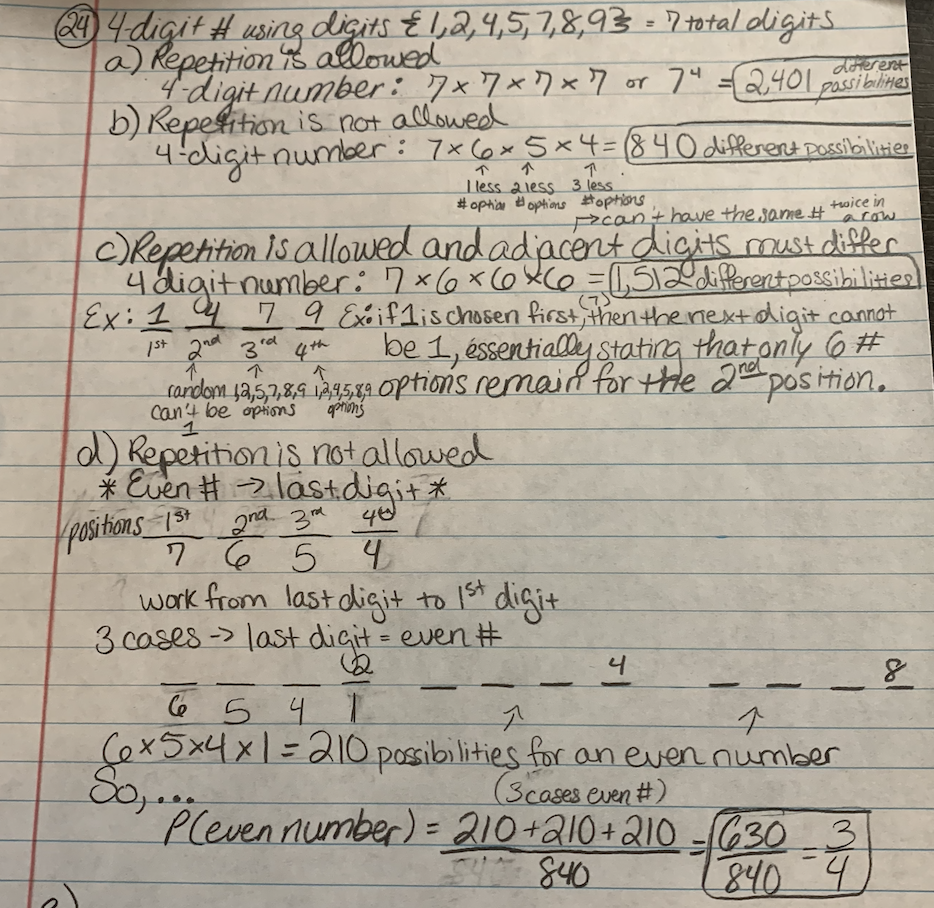 24) 4-digit # using digits {1,2,4,5,7,8,9} = 7 total digits
a) Repetition is allowed
4-digit number: 7 x 7 x 7 x 7 or 7⁴ = 2,401 different possibilities
b) Repetition is not allowed
4-digit number: 7 x 6 x 5 x 4 = 840 different possibilities
↑ ↑ ↑
1 less 2 less 3 less
# option # options # options
↱ can't have the same # twice in a row
c) Repetition is allowed and adjacent digits must differ
4 digit number: 7 x 6 x 6 x 6 = 1,512 different possibilities
Ex: 1 4 7 9 Ex: if 1 is chosen first, (7) then the next digit cannot
1st 2nd 3rd 4th be 1, essentially stating that only 6 #
↑ ↑ ↑
random 1,2,5,7,8,9 1,2,4,5,8,9 options remain for the 2nd position.
can't be options options
1
d) Repetition is not allowed
* Even # → last digit *
positions 1st 2nd 3rd 4th
7 6 5 4
work from last digit to 1st digit
3 cases → last digit = even #
_ _ _ 2 _ _ _ 4 _ _ _ 8
6 5 4 1 ↑ ↑
6 x 5 x 4 x 1 = 210 possibilities for an even number
So, ... (3 cases even #)
P(even number) = 210 + 210 + 210 / 840 = 630 / 840 = 3 / 4